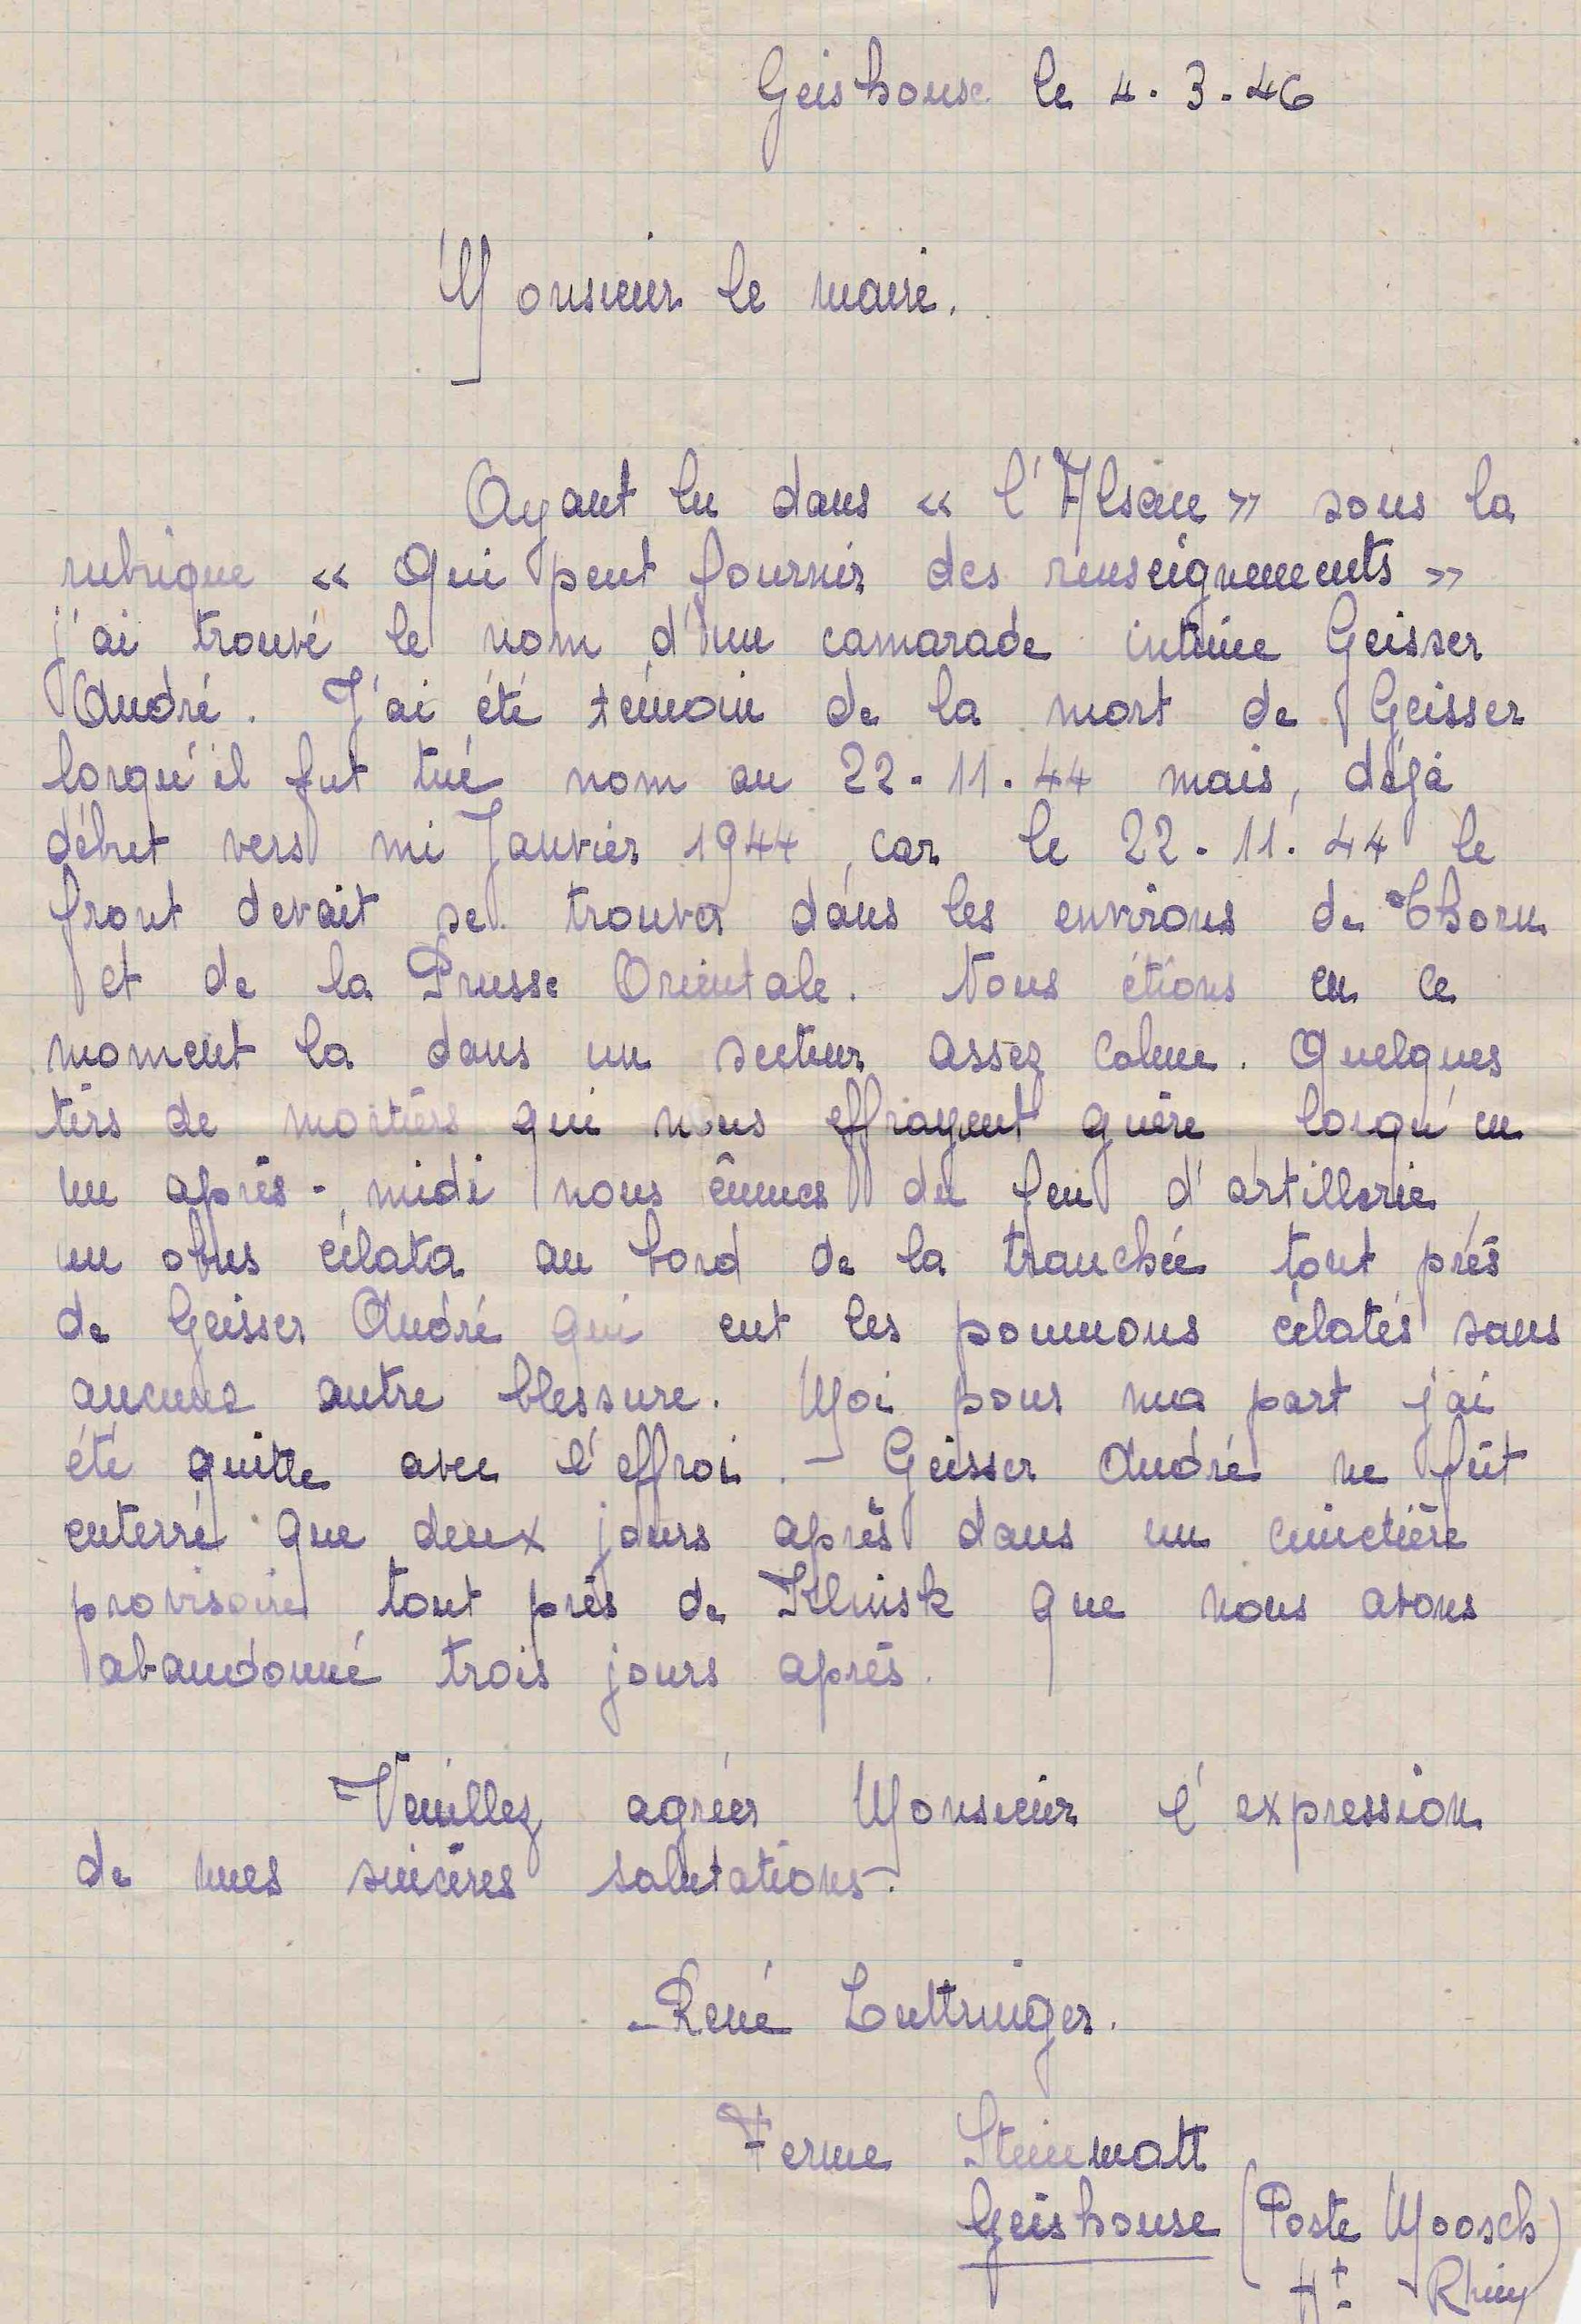 Geishouse le 4.3.46
Monsieur le maire.
Ayant lu dans « l'Alsace » sous la
rubrique « Qui peut fournir des renseignements »
j'ai trouvé le nom d'un camarade intime Geisser
André. J'ai été témoin de la mort de Geisser
lorqu'il fut tué nom au 22.11.44 mais, déjà
début vers mi Janvier 1944, car le 22.11.44 le
front devait se trouver dans les environs de Thorn
et de la Prusse Orientale. Nous étions en ce
moment la dans un secteur assez calme. Quelques
tirs de mortiers qui nous effrayent guère lorqu'en
un après-midi nous eûmes du feu d'artillerie,
un obus éclata au bord de la tranchée tout près
de Geisser André qui eut les poumons éclatés sans
aucune autre blessure. Moi pour ma part j'ai
été quitte avec l'effroi. - Geisser André ne fût
enterré que deux jours après dans un cimetière
provisoire tout près de que nous avons
abandonné trois jours après.
Veuillez agréer Monsieur l'expression
de mes sincères salutations.
René Luttringer.
Ferme Steinmatt
Geishouse (Poste Moosch)
Ht Rhin